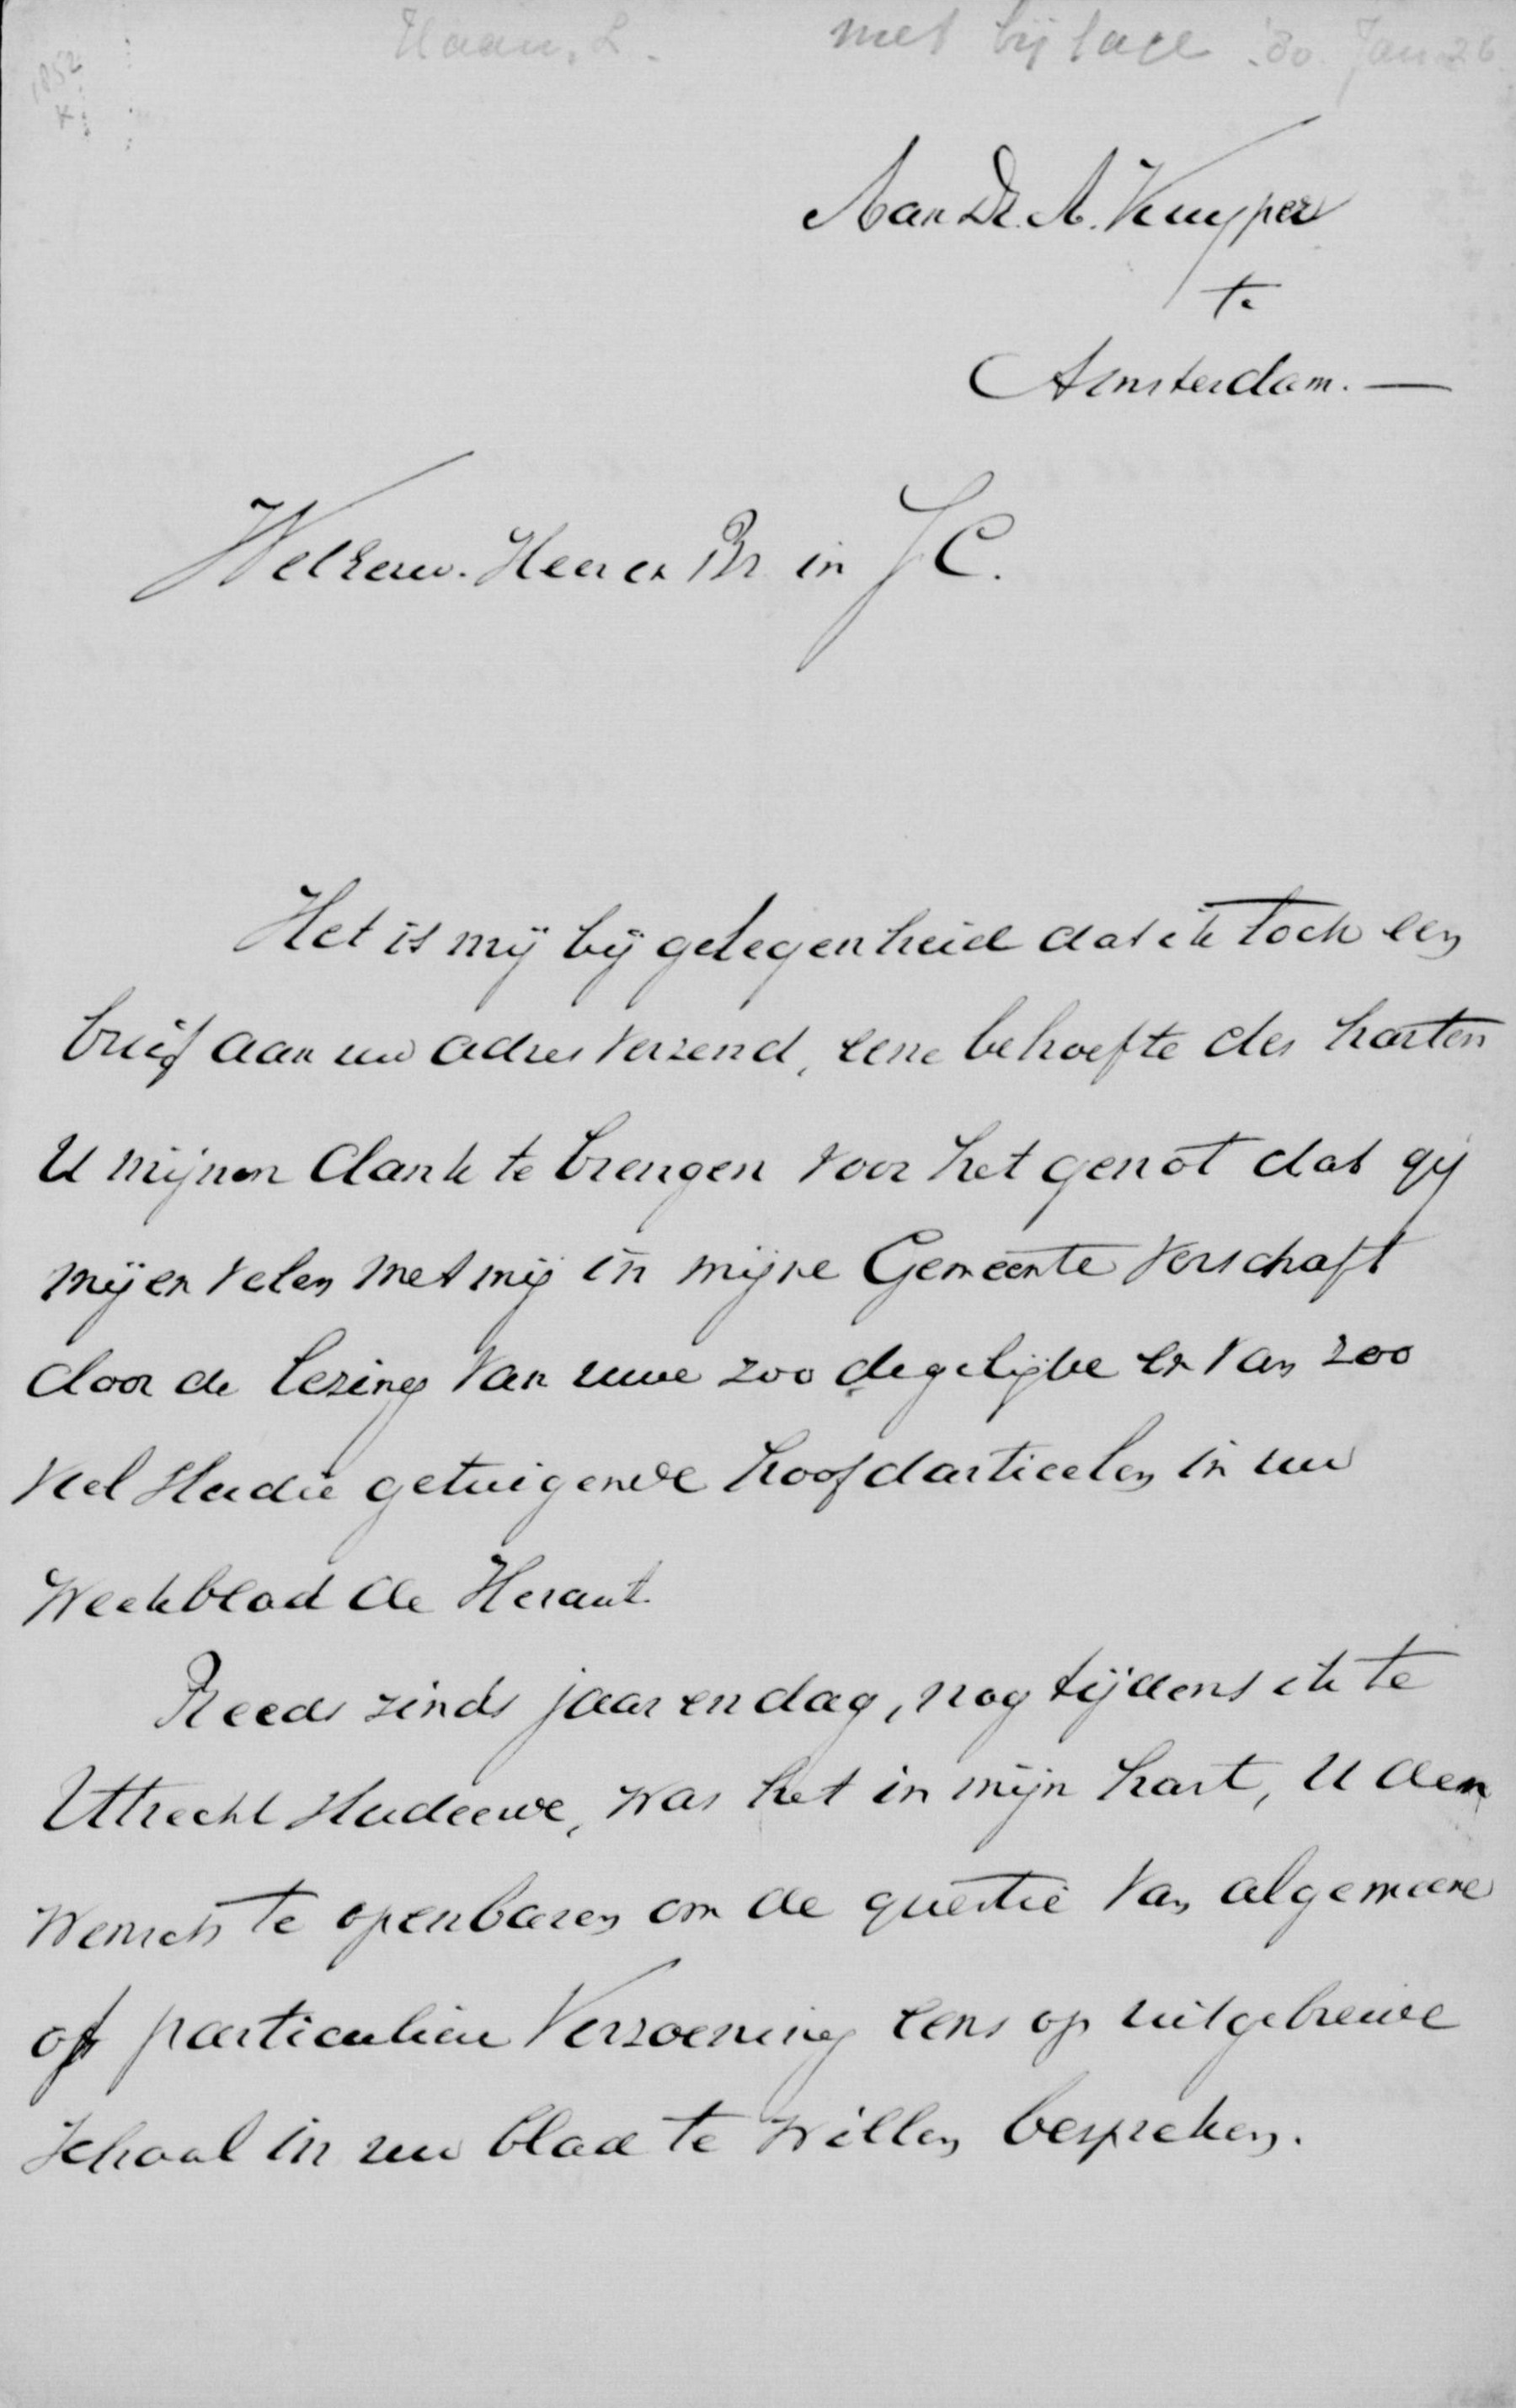 Haan, L. met bijlage '80. Jan 26
1852
Aan Dr. A. Kuyper
te
Amsterdam. —
WelEerw. Heer en Br in J C.
Het is mij bij gelegenheid dat ik toch een
brief aan uw adres verzend, eene behoefte des harten
U mijnen dank te brengen voor het genot dat gij
mij en velen met mij in mijne Gemeente verschaft
door de lezing van uwe zoo degelijke en van zoo
veel studie getuigende hoofdarticelen in uw
Weekblad de Heraut.
Reeds sinds jaar en dag, nog tijdens ik te
Utrecht studeerde, was het in mijn hart, U den
wensch te openbaren om de questie van algemeene
of particuliere Verzoening eens op uitgebreide
schaal in uw blad te willen bespreken.